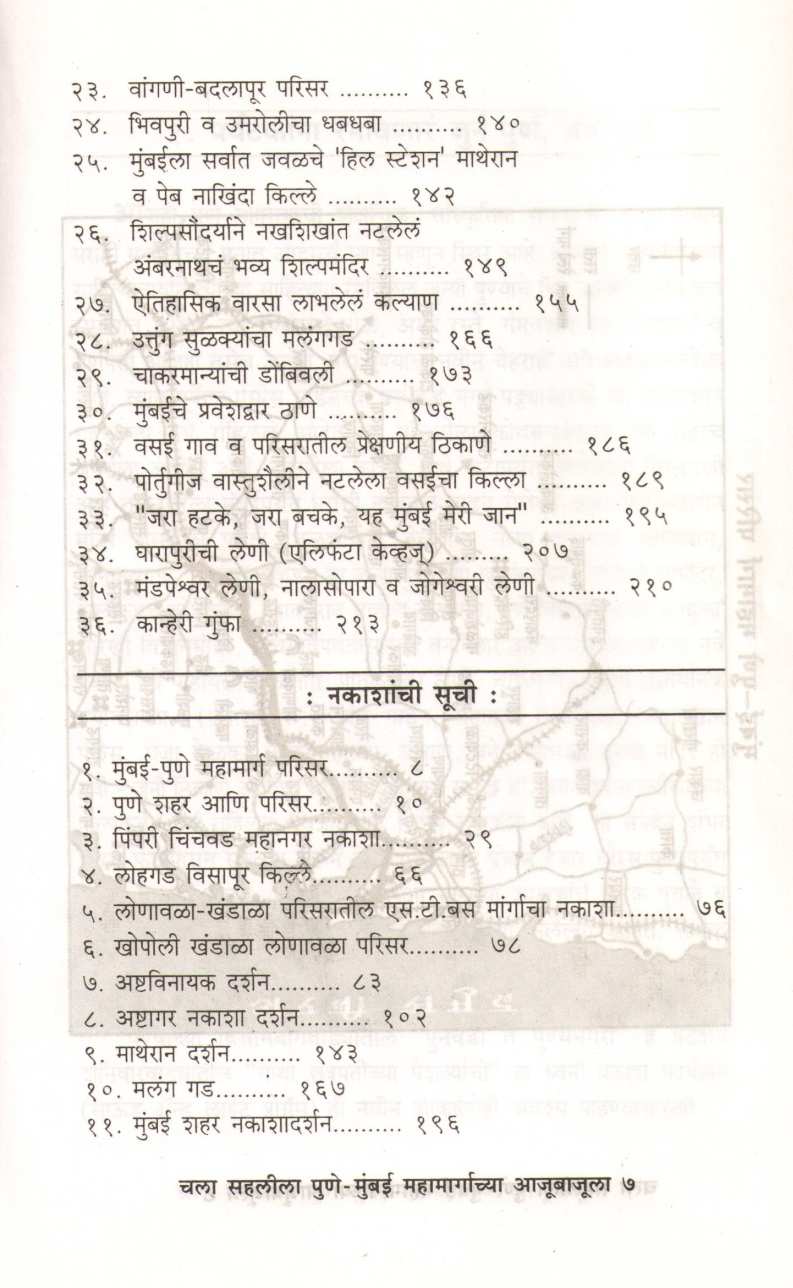 २३. वांगणी-बदलापूर परिसर .......... १३६
२४. भिवपुरी व उमरोलीचा धबधबा .......... १४०
२५. मुंबईला सर्वात जवळचे 'हिल स्टेशन' माथेरान
व पेब नाखिंदा किल्ले .......... १४२
२६. शिल्पसौंदर्याने नखशिखांत नटलेलं
अंबरनाथचं भव्य शिल्पमंदिर .......... १४९
२७. ऐतिहासिक वारसा लाभलेलं कल्याण .......... १५५
२८. उत्तुंग सुळक्यांचा मलंगगड .......... १६६
२९. चाकरमान्यांची डोंबिवली .......... १७३
३०. मुंबईचे प्रवेशद्वार ठाणे .......... १७६
३१. वसई गाव व परिसरातील प्रेक्षणीय ठिकाणे .......... १८६
३२. पोर्तुगीज वास्तुशैलीने नटलेला वसईचा किल्ला .......... १८९
३३. "जरा हटके, जरा बचके, यह मुंबई मेरी जान" .......... १९५
३४. घारापुरीची लेणी (एलिफंटा केव्हज्) ......... २०७
३५. मंडपेश्वर लेणी, नालासोपारा व जोगेश्वरी लेणी .......... २१०
३६. कान्हेरी गुंफा .......... २१३
: नकाशांची सूची :
१. मुंबई-पुणे महामार्ग परिसर.......... ८
२. पुणे शहर आणि परिसर.......... १०
३. पिंपरी चिंचवड महानगर नकाशा.......... २९
४. लोहगड विसापूर किल्ले.......... ६६
५. लोणावळा-खंडाळा परिसरातील एस.टी.बस मांर्गाचा नकाशा.......... ७६
६. खोपोली खंडाळा लोणावळा परिसर.......... ७८
७. अष्टविनायक दर्शन.......... ८३
८. अष्टागर नकाशा दर्शन.......... १०२
९. माथेरान दर्शन.......... १४३
१०. मलंग गड.......... १६७
११. मुंबई शहर नकाशादर्शन.......... १९६
चला सहलीला पुणे-मुंबई महामार्गाच्या आजूबाजूला ७